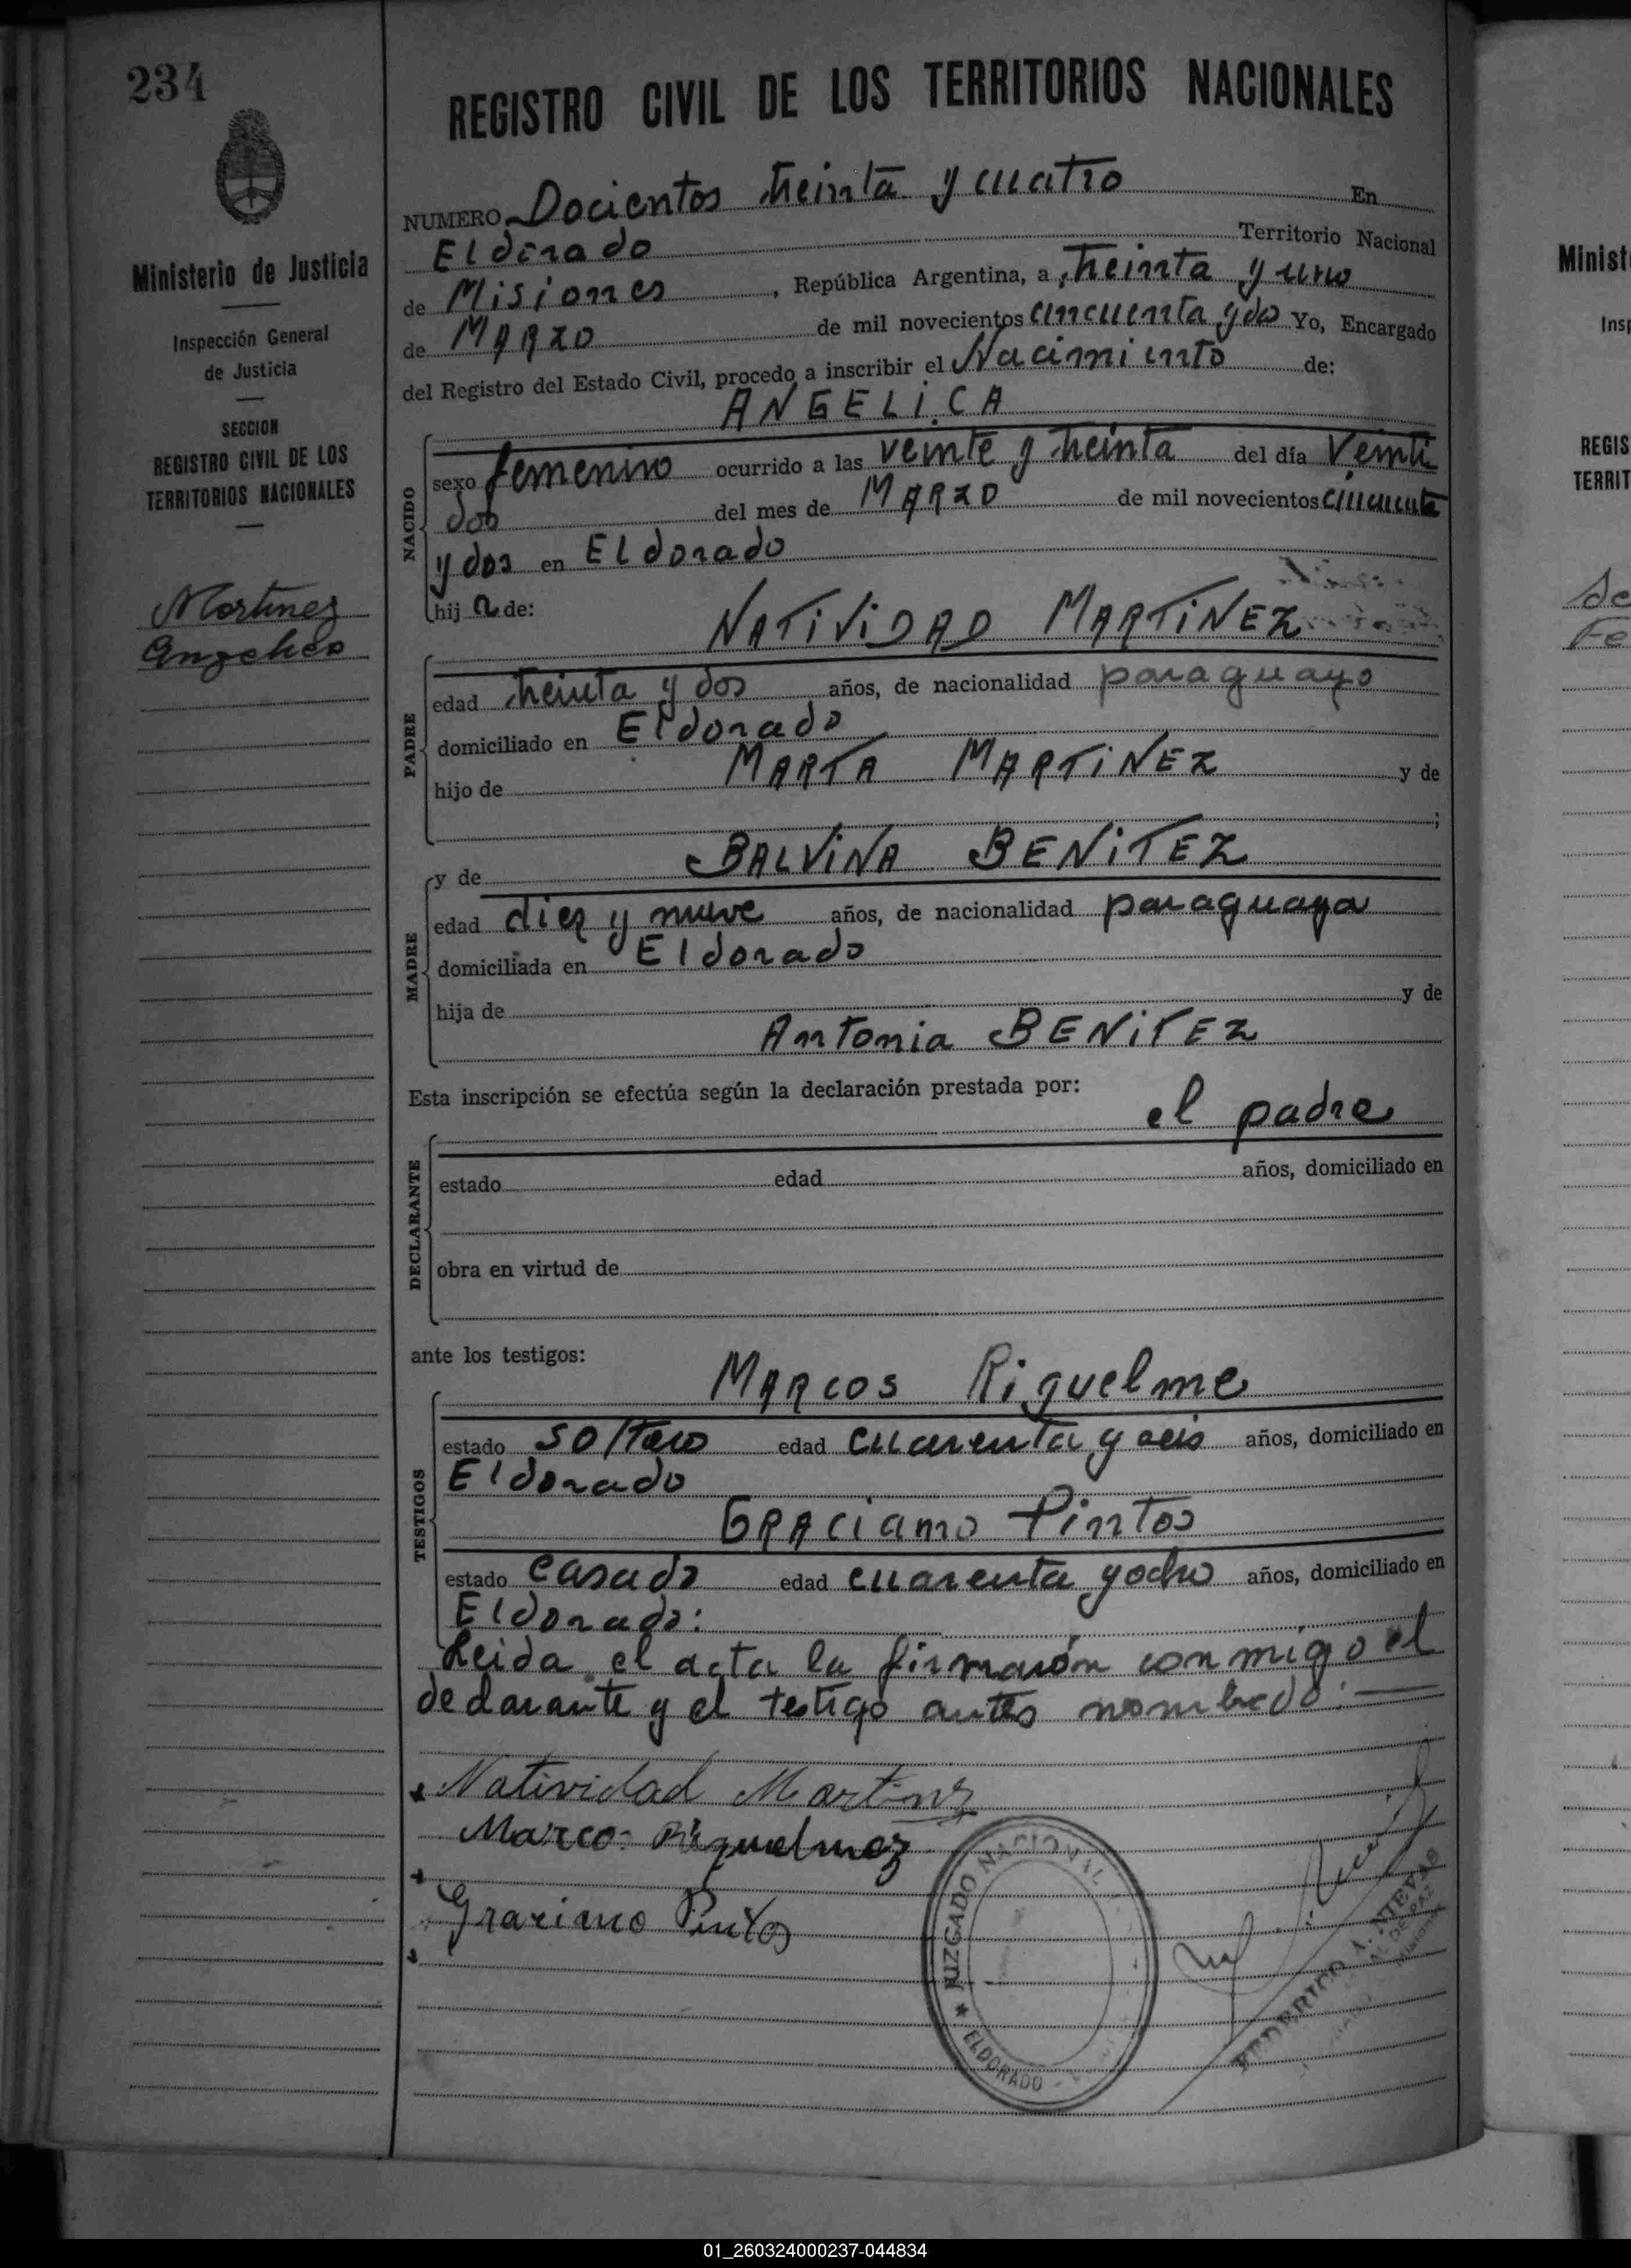 234
REGISTRO CIVIL DE LOS TERRITORIOS NACIONALES
Ministerio de Justicia
Inspección General
de Justicia
SECCION
REGISTRO CIVIL DE LOS
TERRITORIOS NACIONALES
Martinez
Angelica
NUMERO Docientos treinta y cuatro En
Eldorado Territorio Nacional
de Misiones, República Argentina, a treinta y uno
de MARZO de mil novecientos cincuenta y dos Yo, Encargado
del Registro del Estado Civil, procedo a inscribir el Nacimiento de:
ANGELICA
NACIDO
sexo femenino ocurrido a las veinte y treinta del día Veinti
dos del mes de MARZO de mil novecientos cincuenta
y dos en Eldorado
hij a de:
NATIVIDAD MARTINEZ
PADRE
edad treinta y dos años, de nacionalidad paraguayo
domiciliado en Eldorado
hijo de MARTA MARTINEZ y de
;
y de BALVINA BENITEZ
MADRE
edad diez y nueve años, de nacionalidad paraguaya
domiciliada en Eldorado
hija de y de
Antonia BENITEZ
Esta inscripción se efectúa según la declaración prestada por:
el padre
DECLARANTE
estado edad años, domiciliado en
obra en virtud de
ante los testigos:
MARCOS Riquelme
TESTIGOS
estado soltero edad cuarenta y seis años, domiciliado en
Eldorado
GRACIANO Pintos
estado casado edad cuarenta y ocho años, domiciliado en
Eldorado:
Leida el acta la firmarón conmigo el
declarante y el testigo antes nombrado:
Natividad Martinz
Marco Riquelmez
Graziano Pintos
JUZGADO NACIONAL
ELDORADO
FEDERICO A. NIEVAS
DE PAZ
Misiones
Minist
Insp
REGIS
TERRIT
01_260324000237-044834